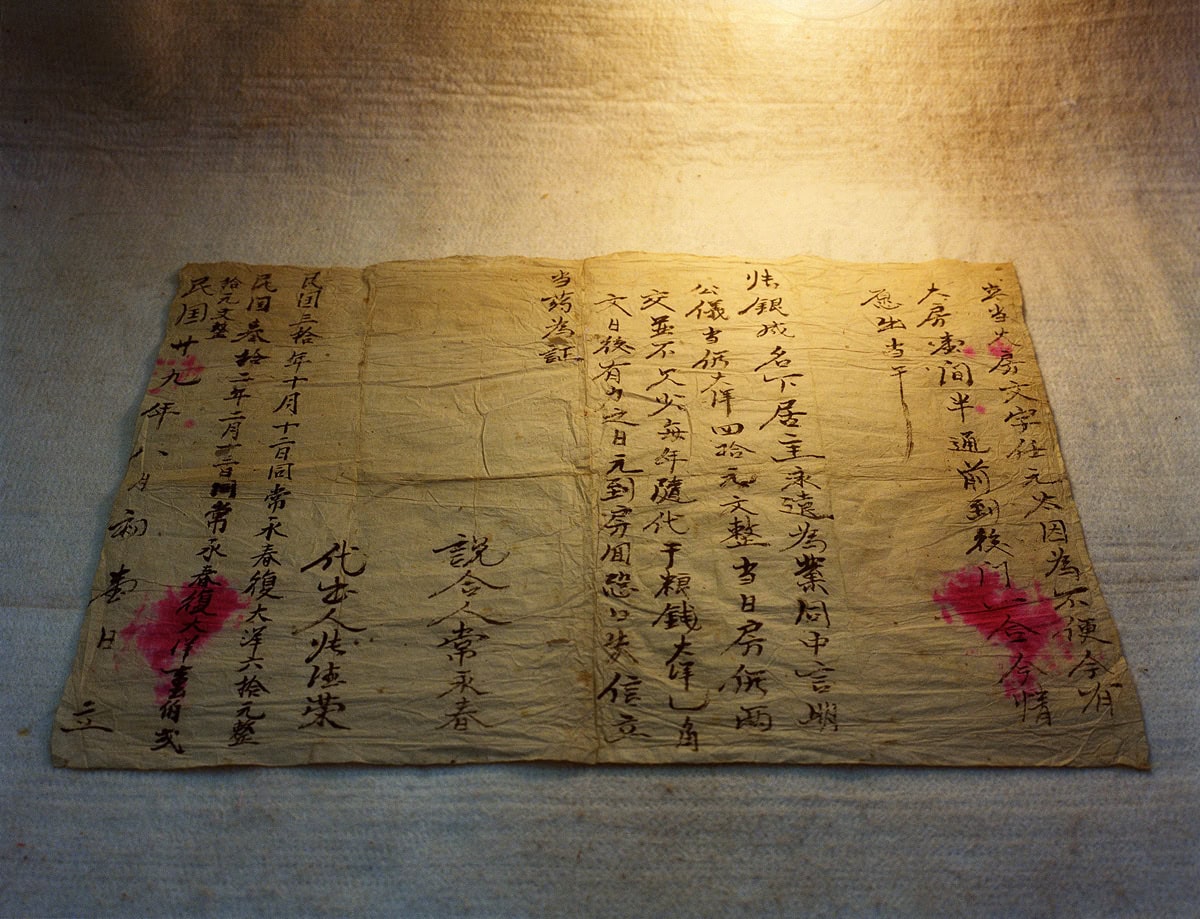 立当大房文字任元太因為不便今有
大房壹间半通前到後門一合今情
愿出当于
張銀成名下居主永遠為業同中言明
公儀当価大洋四拾元文整当日房価両
交並不欠少每年隨代于粮錢大洋乙角
文日後有力之日元到房回恐口失信立
当約為証
説合人常永春
代出人張德荣
民囯三拾年十月十二日同常永春復大洋六拾元整
民囯叁拾二年二月十二日同常永春復大洋壹佰弍
拾元文整
民囯廿九年八月初壹日 立